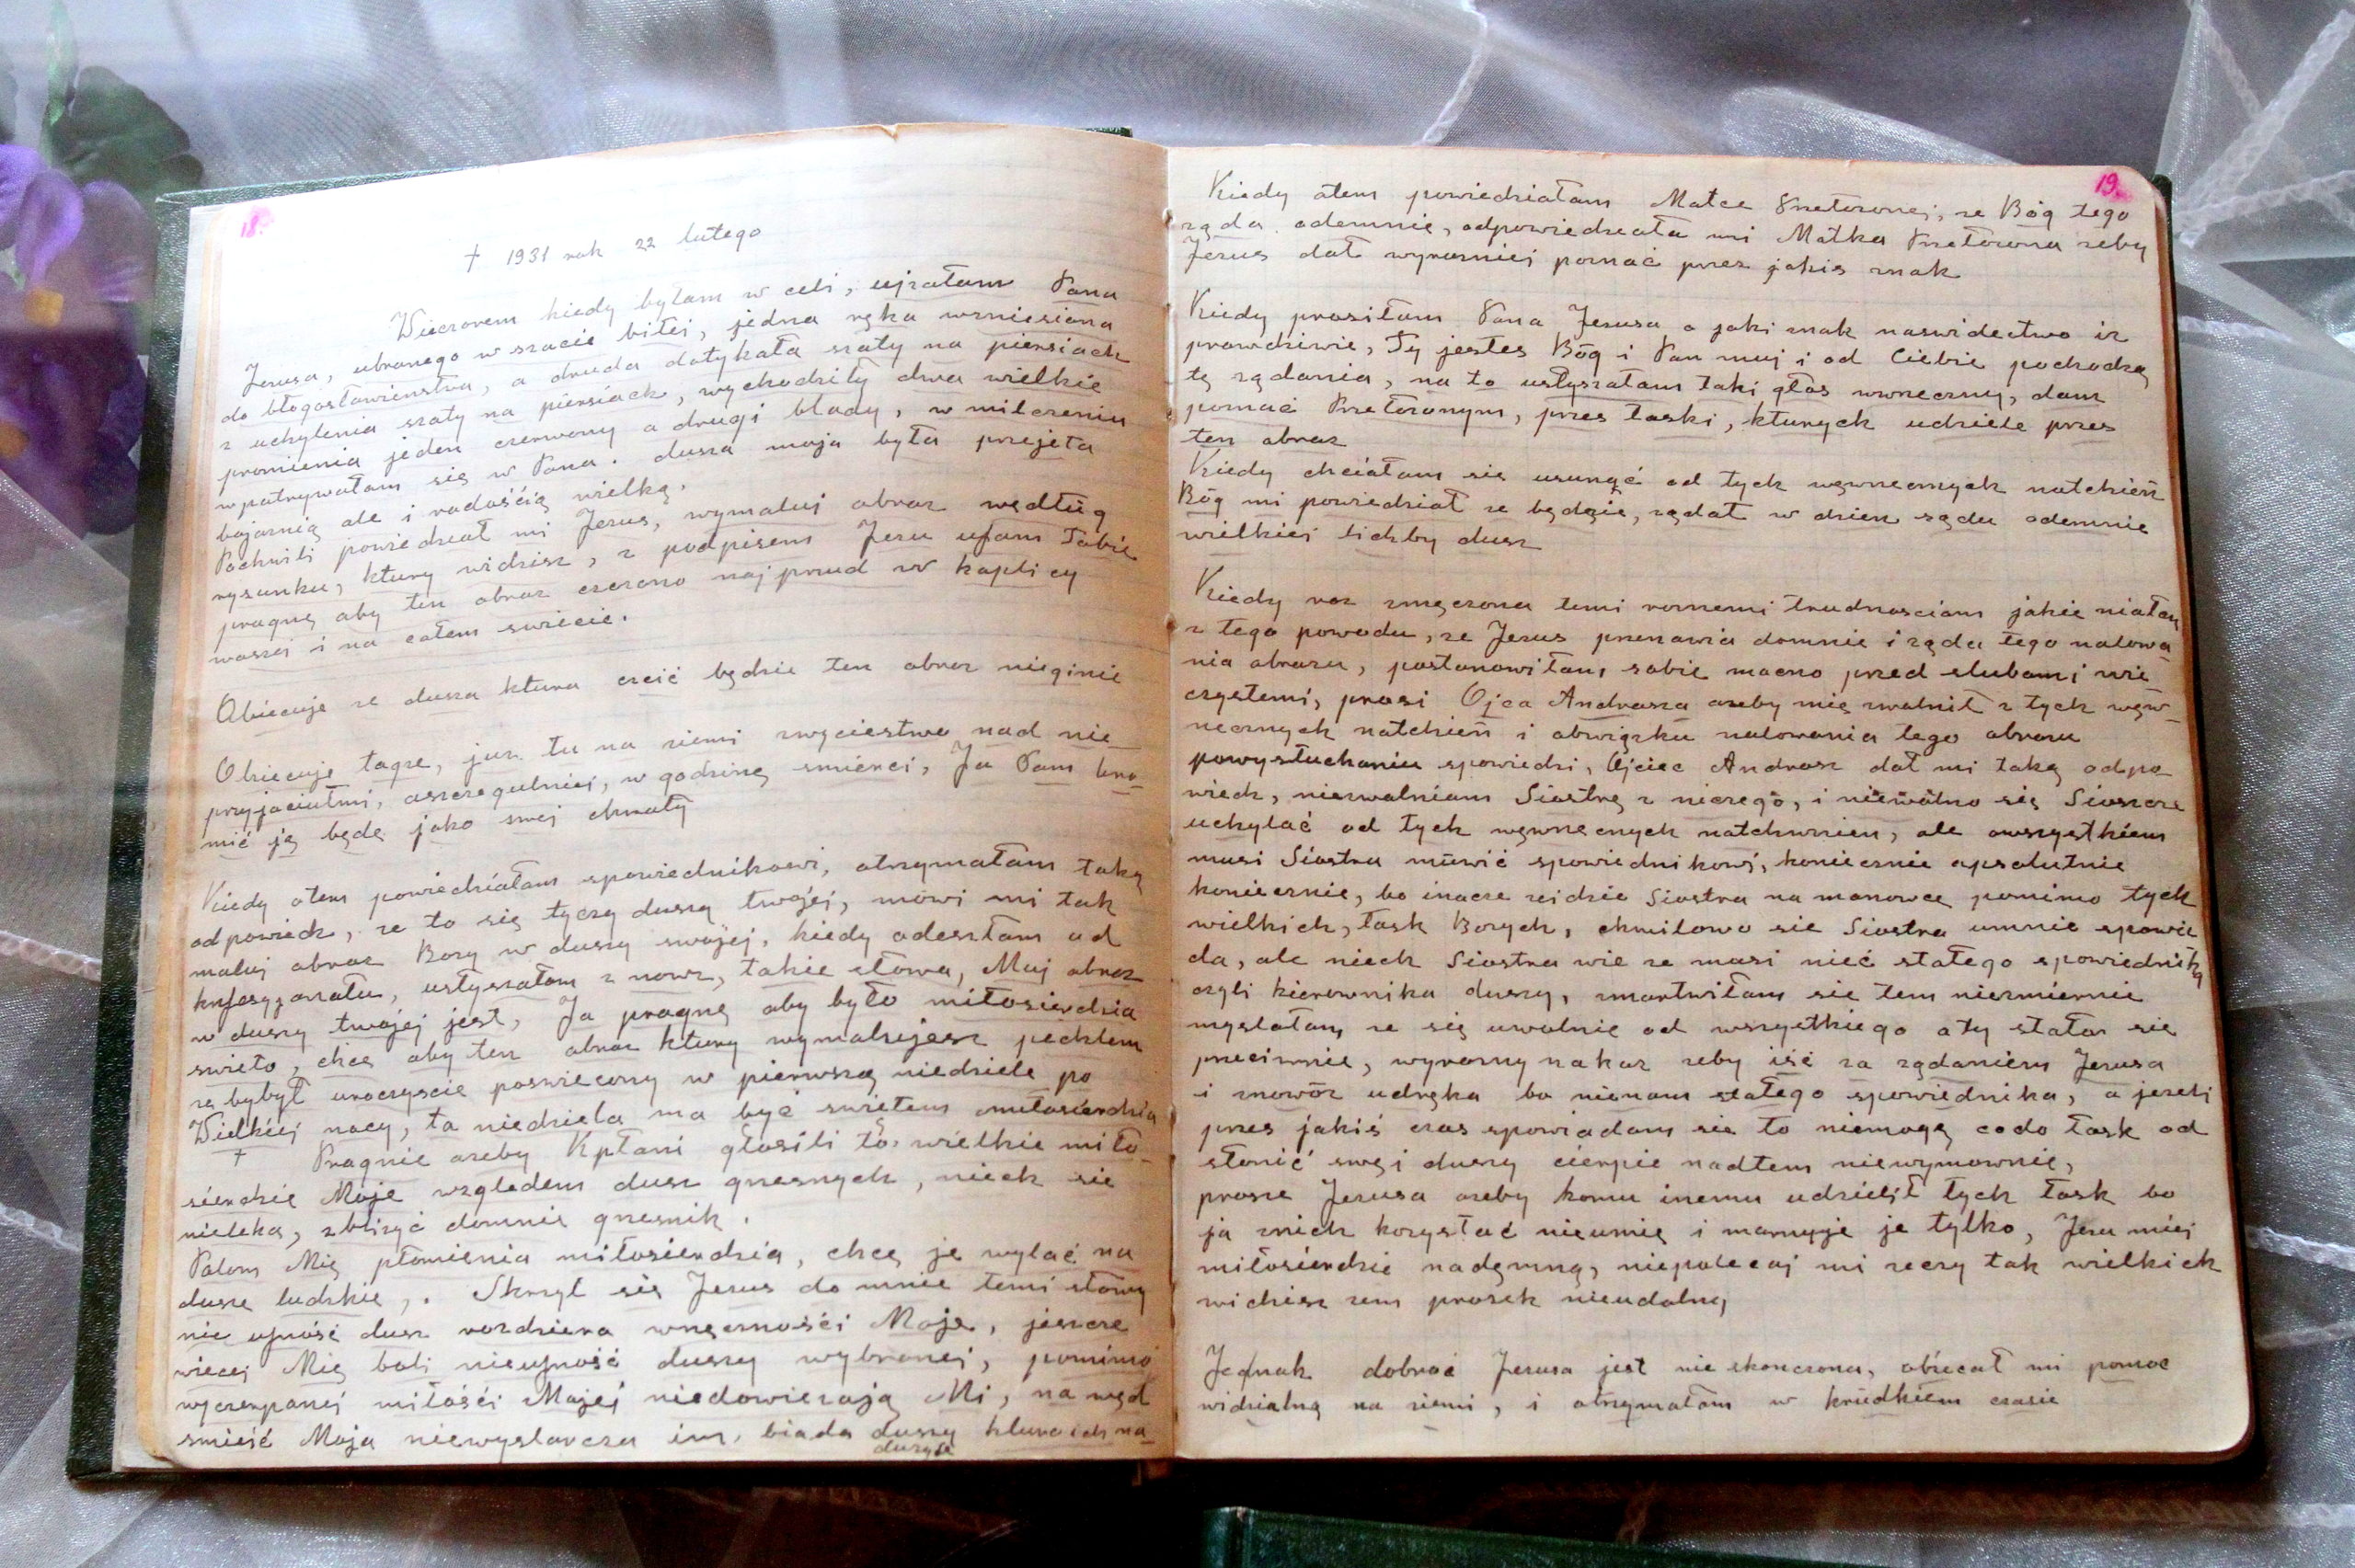 18.
† 1931 rok 22 lutego
Wieczorem kiedy byłam w celi, ujrzałam Pana
Jezusa, ubranego w szacie biłej, jedna ręka wzniesiona
do błogosławieństwa, a druda dotykała szaty na piersiach
z uchylenia szaty na piersiach, wychodziły dwa wielkie
promienia jeden czerwony a drugi blady, w milczeniu
wpatrywałam się w Pana. dusza moja była przejęta
bojaznią ale i radością wielką.
Pochwili powiedział mi Jezus, wymaluj obraz wędług
rysunku, ktury widzisz, z podpisem Jezu ufam Tobie
pragnę aby ten obraz czczono najprzud w kaplicy
waszej i na całem swiecie.
Obiecuje ze dusza ktura czcić będzie ten obraz nieginie
Obiecuje tagze, juz tu na ziemi zwycięstwo nad nie
przyjaciułmi, aszczegulniej, w godzinę smierci, Ja Sam bro-
mić ją będę jako swej chwały
Kiedy otem powiedziałam spowiednikowi, otrzymałam taką
odpowiedz, ze to się tyczy duszą twojej, mówi mi tak
maluj obraz Bozy w duszy swojej, kiedy odeszłam od
knfesyjonału, usłyszałam z nowz, takie słowa, Muj obraz
w duszy twojej jest, Ja pragnę aby było miłosierdzia
swieto, chcę aby ten obraz ktury wymalujesz pędzlem
zębybył uroczyscie poswiecony w pierwszą niedziele po
Wielkiej nocy, ta niedziela ma być swiętem miłosierdzia
† Pragnie azeby Kpłani głosili to wielkie miło-
sierdzie Moje względem dusz grzesznych, niech sie
nieleka, zblizyć domnie grzesnik.
Palom Mię płomienia miłosierdzia, chcę je wylać na
dusze ludzkie,. Skrzył się Jezus do mnie temi słowy
nie ufność dusz rozdziera wnęcznośći Moje, jeszcze
wiecej Mię boli nieufność duszy wybranej, pomimo
wyczerpanej miłośći Mojej niedowierzają Mi, na węd
smieść Moja niewystarcza im, biada duszy ktura ich na-
duzyje
19.
Kiedy otem powiedziałam Matce Przełozonej, ze Bóg tego
ząda odemnie, odpowiedziała mi Matka Przełozona zeby
Jezus dał wyrazniej poznać przez jakis znak
Kiedy prosiłam Pana Jezusa o jaki znak naswidectwo iz
prawdziwie, Ty jestes Bóg i Pan muj i od Ciebie pochodzą
tę ządania, na to usłyszałam taki głos wewnęczny, dam
poznać Przełozonym, przes łaski, kturych udziele przes
ten obraz
Kiedy chciałam sie usunąć od tych węwnęcznych natchień
Bóg mi powiedział ze będzie, ządał w dzien sądu odemnie
wielkiej lichby dusz
Kiedy raz zmęczona temi roznemi trudnosciam jakie miałam
z tego powodu, ze Jezus przemawia domnie i ząda tego malowa
nia obrazu, postanowiłam sobie mocno przed slubami wie
czystemi, prosi Ojca Andrasza azeby mię zwalnił z tych węw-
nęcznych natchień i obwiązku malowania tego obrazu
powysłuchaniu spowiedzi, Ojciec Andrasz dał mi taką odpo
wiedz, niezwalniam Siostrę z niczego, i niewolno się Siosrze
uchylać od tych węwnęcnych natchwnien, ale owszystkiem
musi Siostra mówić spowiednikowi, koniecznie apsolutnie
koniecznie, bo inacze zeidzie Siostra na manowce pomimo tych
wielkich, łask Bozych, chwilowo sie Siostra umnie spowie
da, ale niech Siostra wie ze musi mieć stałego spowiednika
czyli kierownika duszy, zmartwiłam sie tem niezmiernie
myslałam, ze się uwolnie od wszystkiego aty stało sie
przeciwnie, wyrazny nakaz zeby iść za ządaniem Jezusa
i znowóz udręka bo niemam stałego spowiednika, a jezeli
przes jakiś czas spowiadam sie to niemogę codo łask od
słonić swęj duszy cierpie nadtem niewymownie,
prosze Jezusa azeby komu inemu udzielił tych łask bo
ja znich kozystać nieumię i marnyję je tylko, Jezu miej
miłosierdzie nadęmną, niepolecaj mi rzeczy tak wielkich
widzisz zem proszek nieudolny
Jednak dobroć Jezusa jest nieskonczona, obiecał mi pomoc
widzialną na ziemi, i otrzymałam w krudkiem czasie